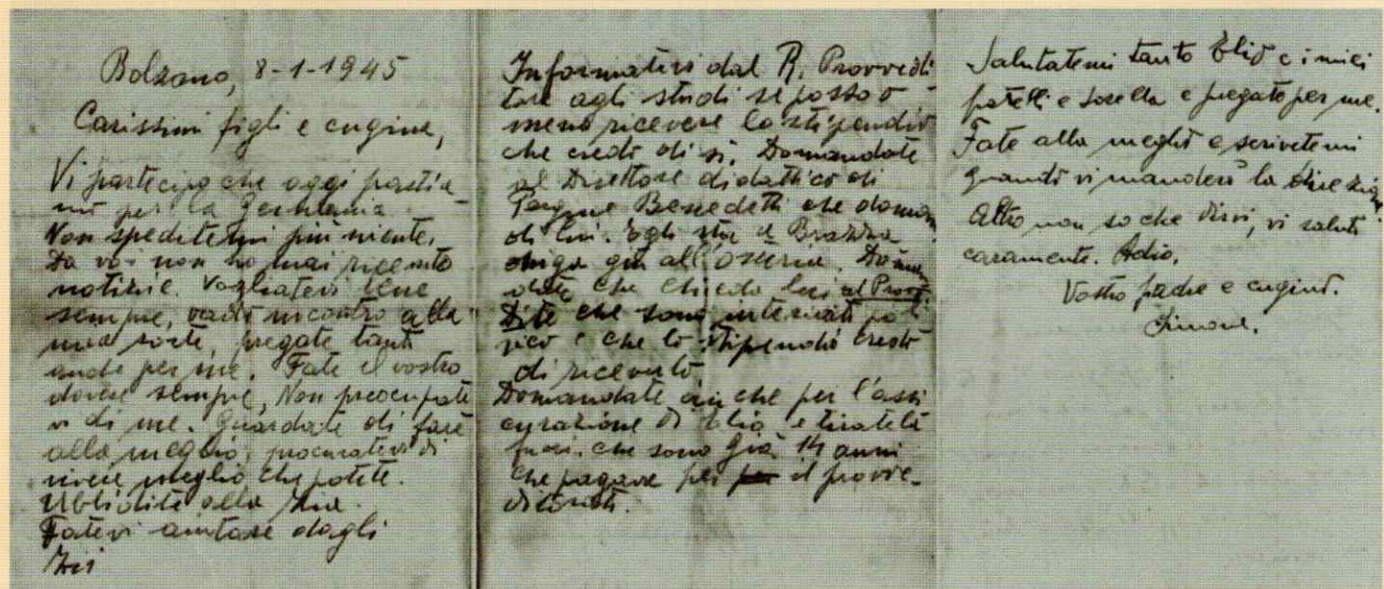 Bolzano, 8-1-1945
Carissimi figli e cugina,
Vi partecipo che oggi partia-
mo per la Germania.
Non speditemi più niente.
Da voi non ho mai ricevuto
notizie. Vogliatevi bene
sempre, vado incontro alla
mia sorte, pregate tanto
anche per me. Fate il vostro
dovere sempre, Non preocupate
vi di me. Guardate di fare
alla meglio, procuratevi di
vivere meglio che potete.
Ubbidite alla zia.
Fatevi aiutare dagli
zii
Informatevi dal R. Provvedi
tore agli studi se posso o
meno ricevere lo stipendio
che credo di sì. Domandate
al Direttore didattico di
Pergine Benedetti che
di lui. Egli sta a
già all'osteria.
date che chiedo lui al
Dite che sono internato poli
tico e che lo stipendio credo
di riceverlo
Domandate anche per l'assi
curazione di Elio e tiratela
fuori che sono già 14 anni
che pagava per il provve-
ditorato.
Salutatemi tanto Elio e i miei
fratelli e sorella e pregate per me.
Fate alla meglio e scrivetemi
quando vi manderò la direzione.
Altro non so che dirvi, vi saluto
caramente. Adio.
Vostro padre e cugino.
Simone.